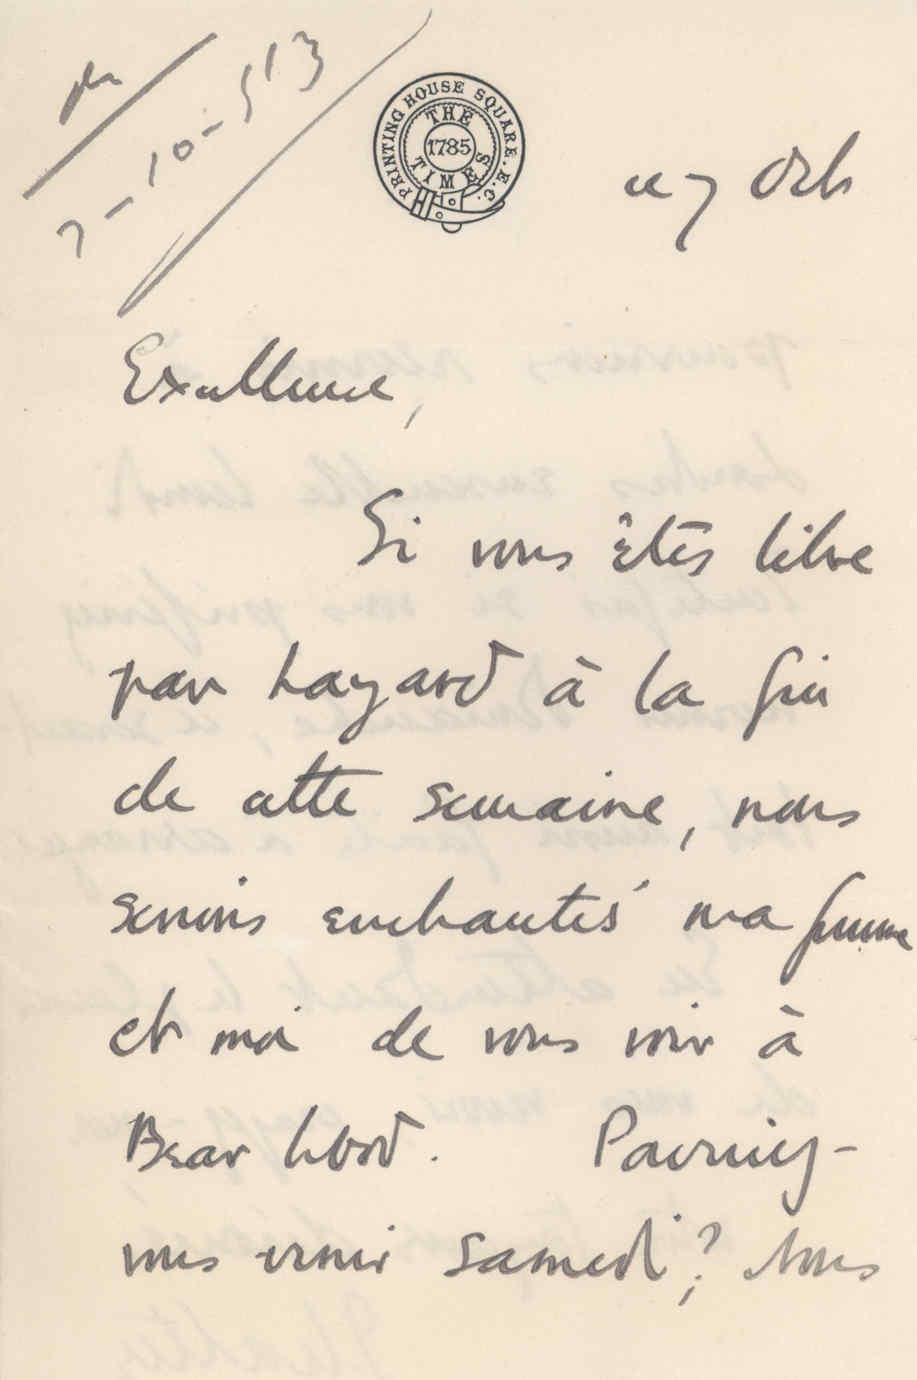 7-10-513
PRINTING HOUSE SQUARE. E.C.
THE
1785
TIMES
ce 7 Octb
Excellence,
Si vous êtes libre
par hazard à la fin
de cette semaine, nous
serions enchantés ma femme
et moi de vous voir à
Bear Wood. Pourriez-
vous venir samedi? Nous